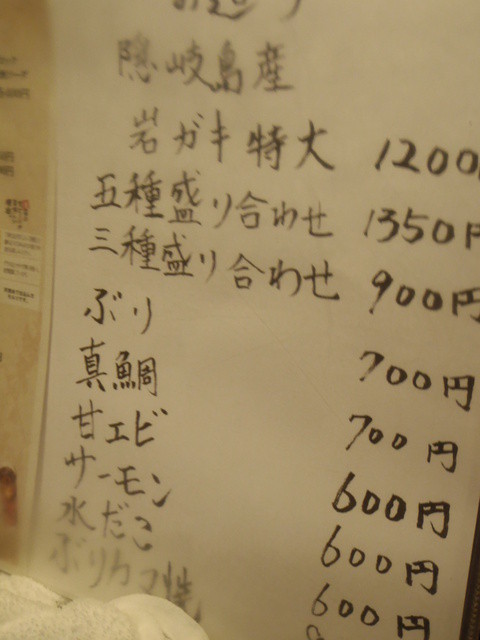 隠岐島産
岩ガキ特大 1200
五種盛り合わせ 1350円
三種盛り合わせ 900円
ぶり 700円
真鯛 700円
甘エビ 600円
サーモン 600円
水だこ 600円